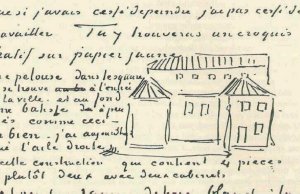 que si j'avais cessé dependu j'ai pas cessé de
travailler Tu y trouveras un croquis
hatif sur papier jaune
une pelouse dans le square
se trouve à l'entrée
la ville. et au fond
une batisse
comme ceci -
bien. j'ai aujourd'hui
l'aile droite
cette construction qui contient 4 pieces
plutôt deux avec deux cabinets